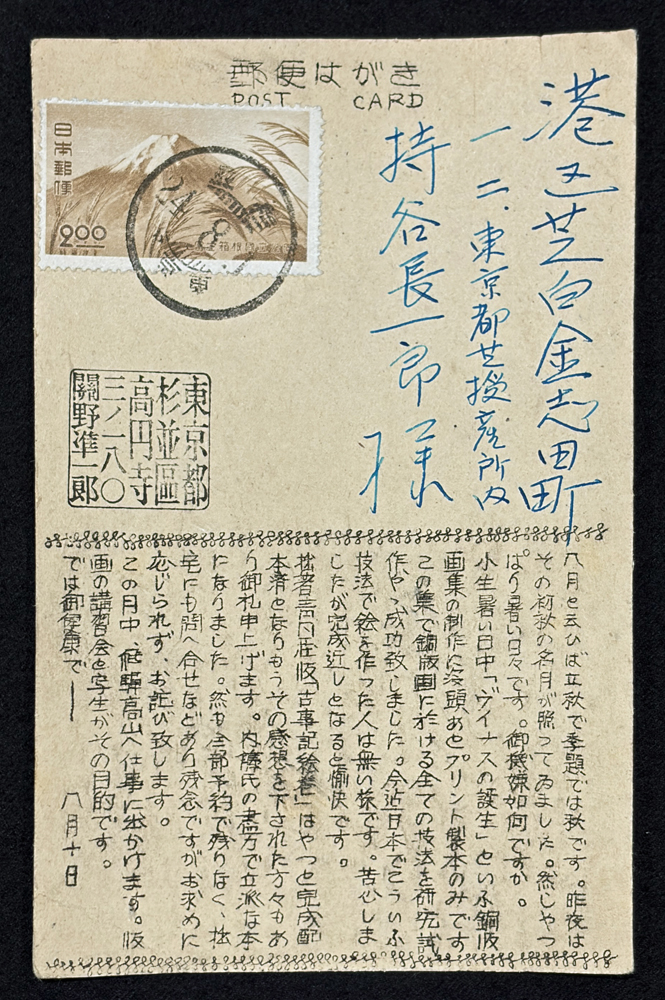 郵便はがき
POST CARD
日本郵便
2.00
港区芝白金志田町
一二.東京都芝授産所内
持谷長一郎様
東京都
杉並區
高円寺
三ノ一八〇
關野準一郎
八月と云ひば立秋で季題では秋です。昨夜は
その初秋の名月が照つてゐました。然しやつ
ぱり暑い日々です。御機嫌如何ですか。
小生暑い日中「ヴイナスの誕生」といふ銅版
画集の制作に没頭あとプリント製本のみです
この集で銅版画に於ける全ての技法を研究試
作やゝ成功致しました。今迄日本でこういふ
技法で絵を作つた人は無い様です。苦心しま
したが完成近しとなると愉快です。
拙著「古事記絵巻」はやつと完成配
本済となりもうその感想を下された方々もあ
り御礼申上げます。内藤氏の盡力で立派な本
になりました。然も全部予約で残りなく、拙
宅にも問へ合せなどあり残念ですがお求めに
応じられず、お詫び致します。
この月中、飛騨高山へ仕事に出かけます。版
画の講習会と写生がその目的です。
では御健康で——
八月十日